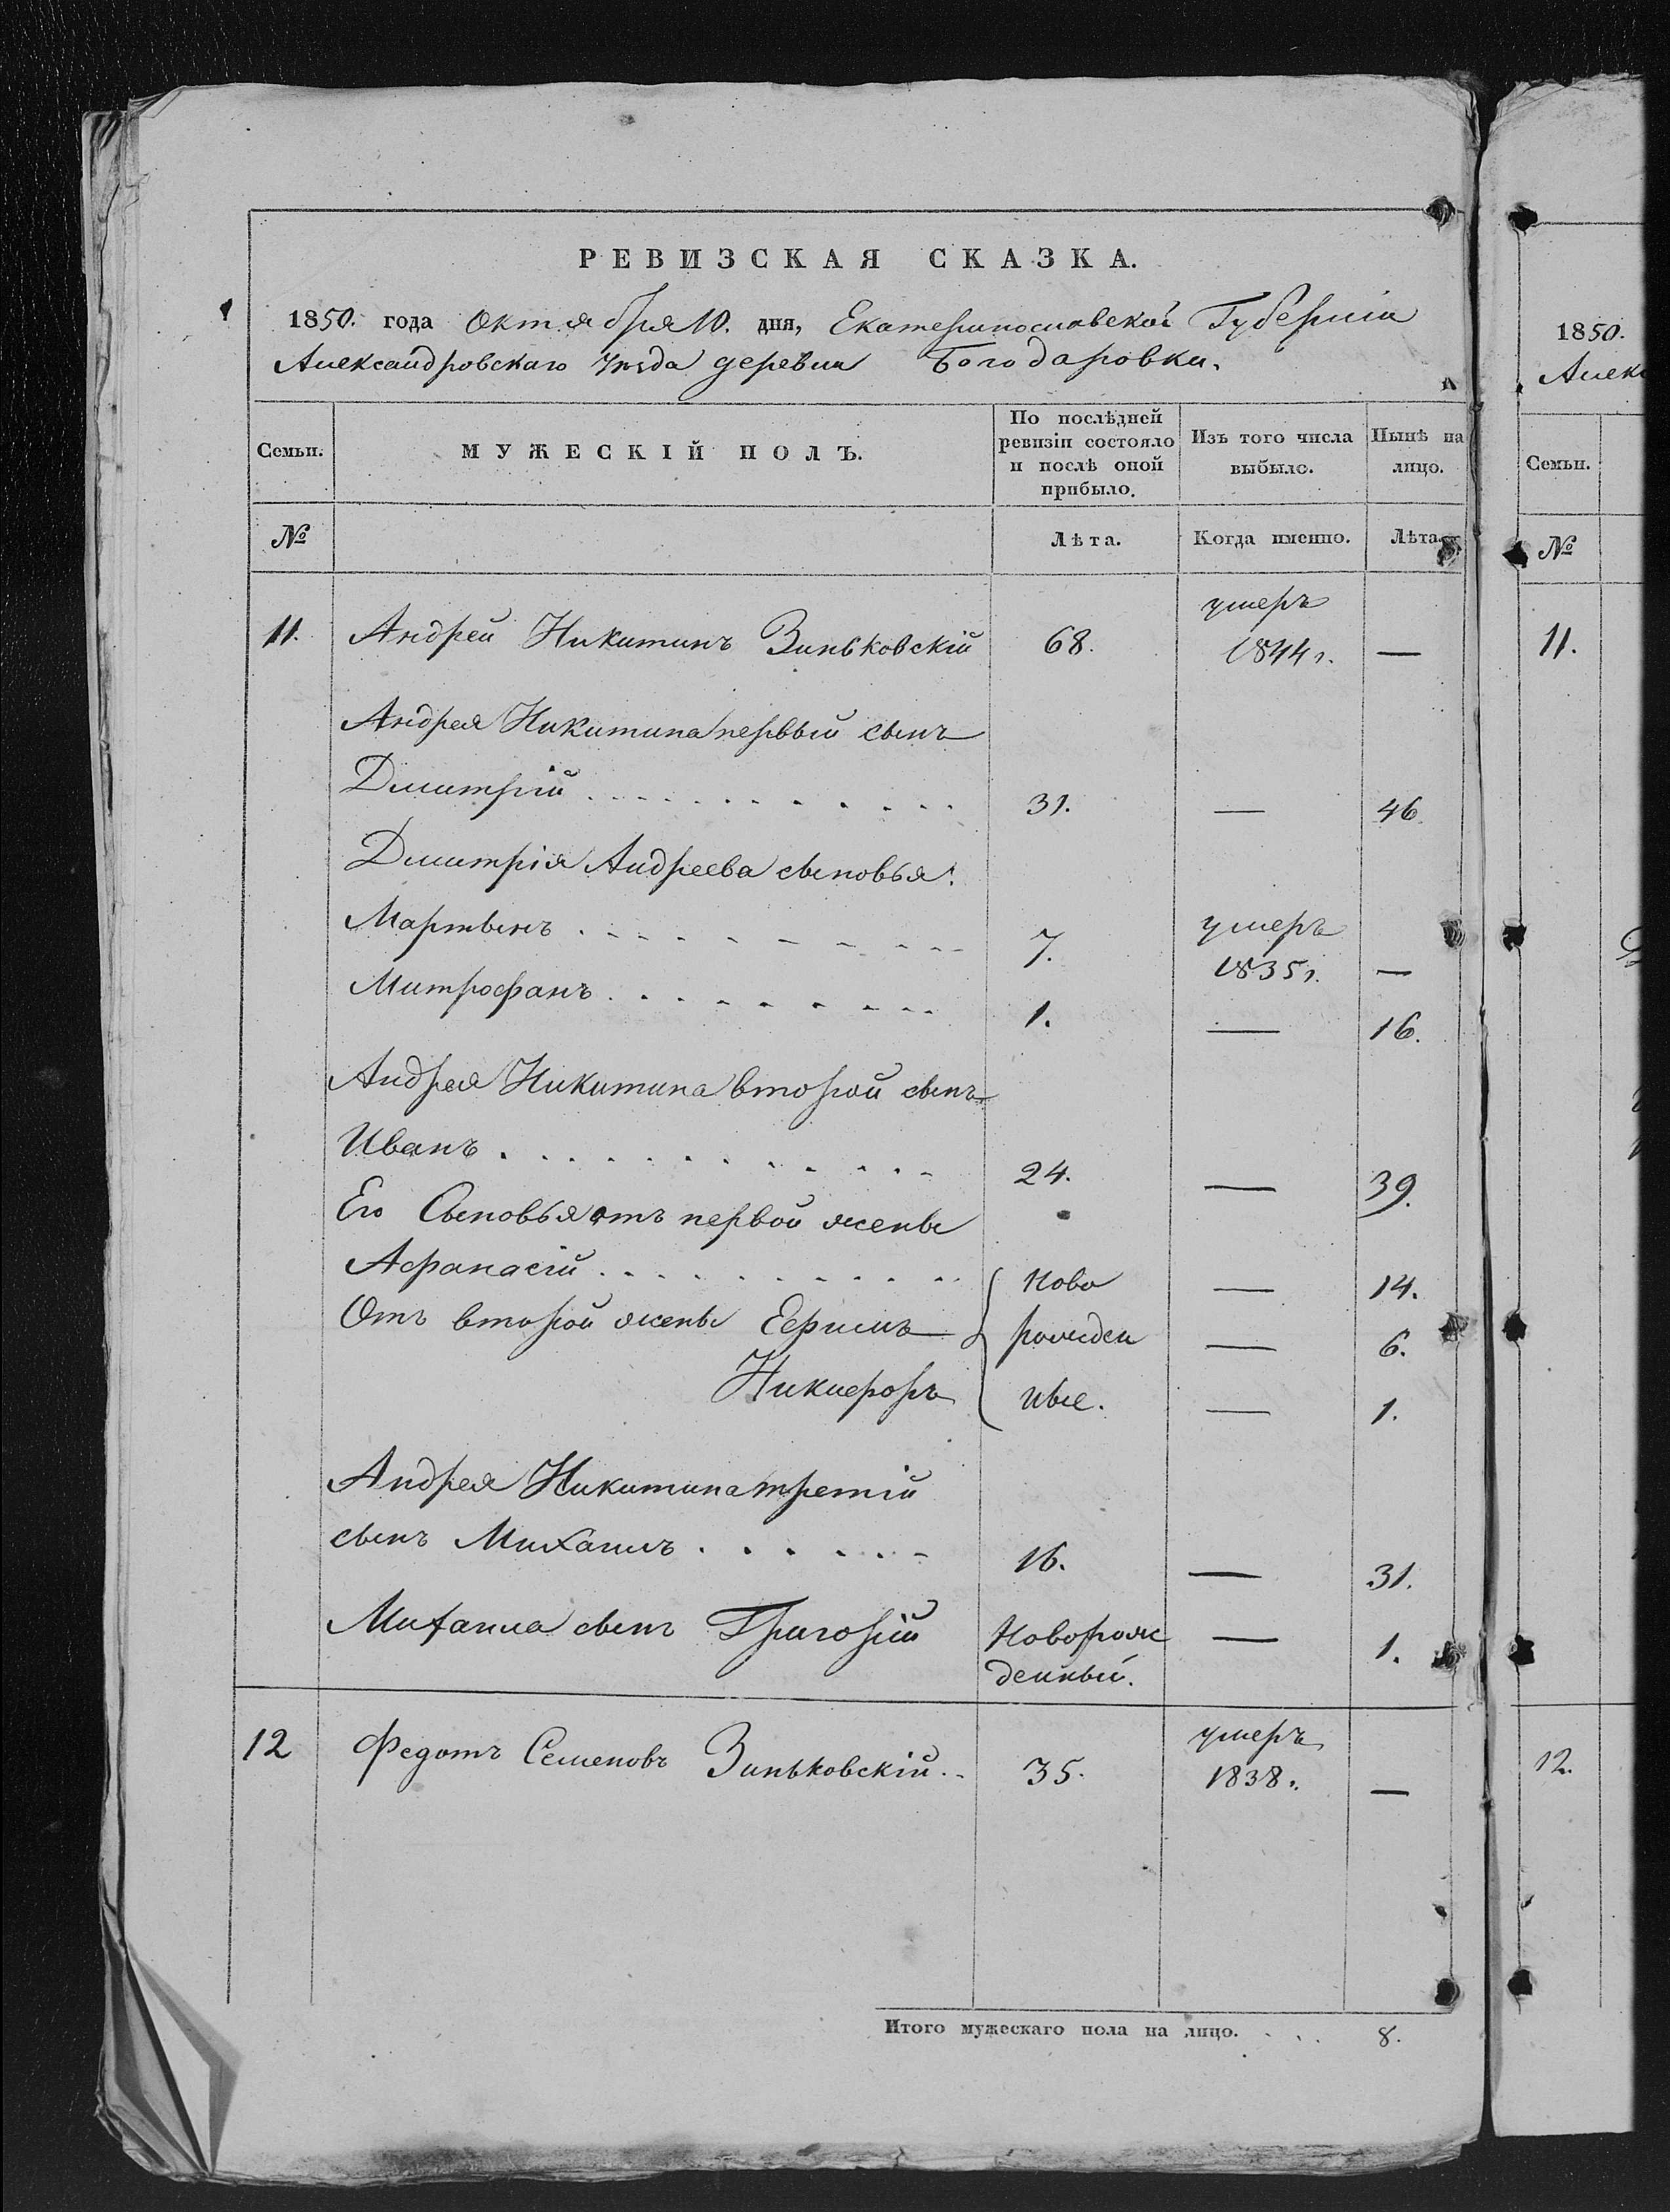 РЕВИЗСКАЯ СКАЗКА.
1850. года Октября 10. дня, Екатеринославской Губерніи
Александровскаго Уѣзда деревни Богодаровки.
Семьи.
МУЖЕСКІЙ ПОЛЪ.
По послѣдней
ревизіи состояло
и послѣ оной
прибыло.
Изъ того числа
выбыло.
Нынѣ на
лицо.
№
Лѣта.
Когда именно.
Лѣта.
11. Андрей Никитинъ Зиньковскій 68. умеръ
1844 г. —
Андрея Никитина первый сынъ
Дмитрій 31. — 46
Дмитрія Андреева сыновья:
Мартынъ 7. умеръ
1835 г. —
Митрофанъ 1. — 16.
Андрея Никитина второй сынъ
Иванъ 24. — 39.
Его Сыновья отъ первой жены
Афанасій Ново — 14.
Отъ второй жены Ефимъ рожден — 6.
Никифоръ ные. — 1.
Андрея Никитина третій
сынъ Михаилъ 16. — 31.
Михаила сынъ Григорій Новорож — 1.
денный.
12 Федотъ Семеновъ Зиньковскій 35. умеръ
1838. —
Итого мужескаго пола на лицо. 8.
1850.
Алекс
Семьи.
№
11.
12.